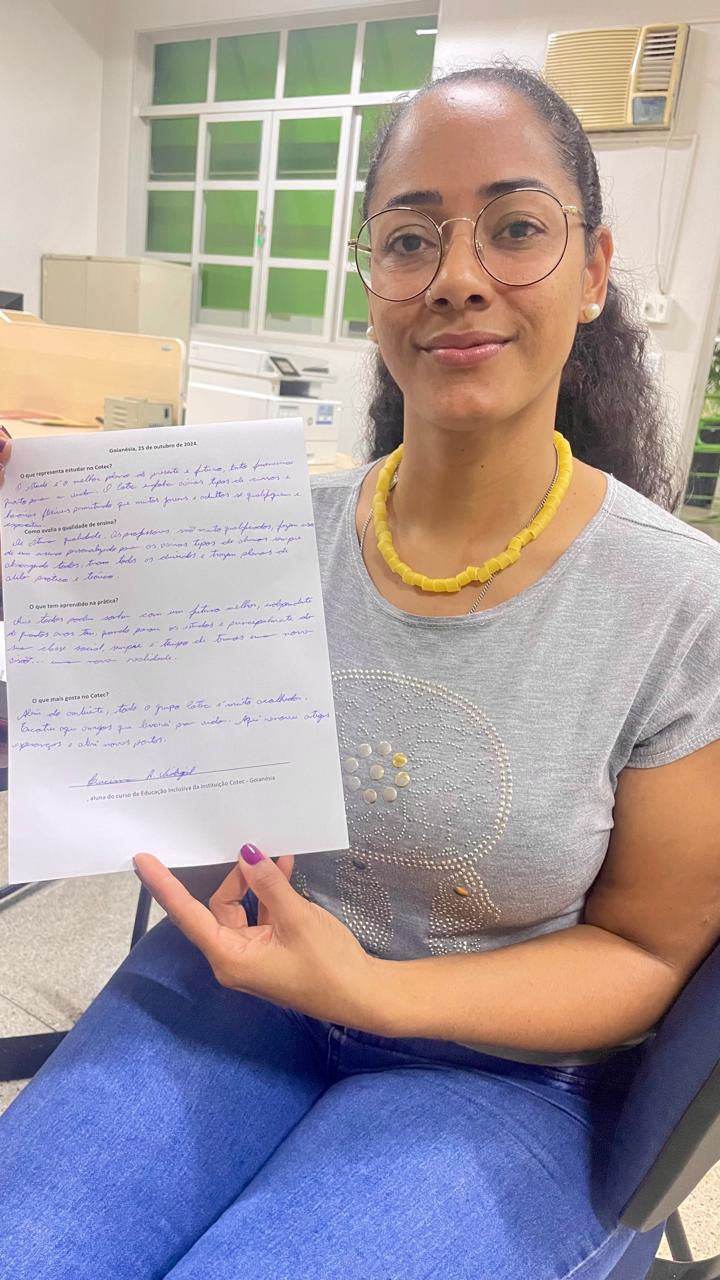 Goianésia, 25 de outubro de 2024.
O que representa estudar no Cotec?
O estudo é o melhor plano de presente e futuro, tanto financeiro
quanto para a vida. O Cotec engloba vários tipos de cursos e
horários flexíveis permitindo que muitos jovens e adultos se qualifiquem e
Como avalia a qualidade de ensino?
De ótima qualidade. Os professores são muito qualificados, fazem uso
de um ensino personalizado para os vários tipos de alunos sempre
abrangendo todos, tiram todas as dúvidas e trazem planos de
aula prática e teórica.
O que tem aprendido na prática?
Que todos podem sonhar com um futuro melhor, independente
de quantos anos tem, quando parou os estudos e principalmente da
sua classe social, sempre é tempo de termos uma nova
visão... uma nova realidade.
O que mais gosta no Cotec?
Além do ambiente, todo o grupo Cotec é muito acolhedor.
Encontrei aqui amigos que levarei por vida. Aqui renovei antigas
esperanças e abri novas portas.
, aluna do curso de Educação Inclusiva da Instituição Cotec - Goianésia